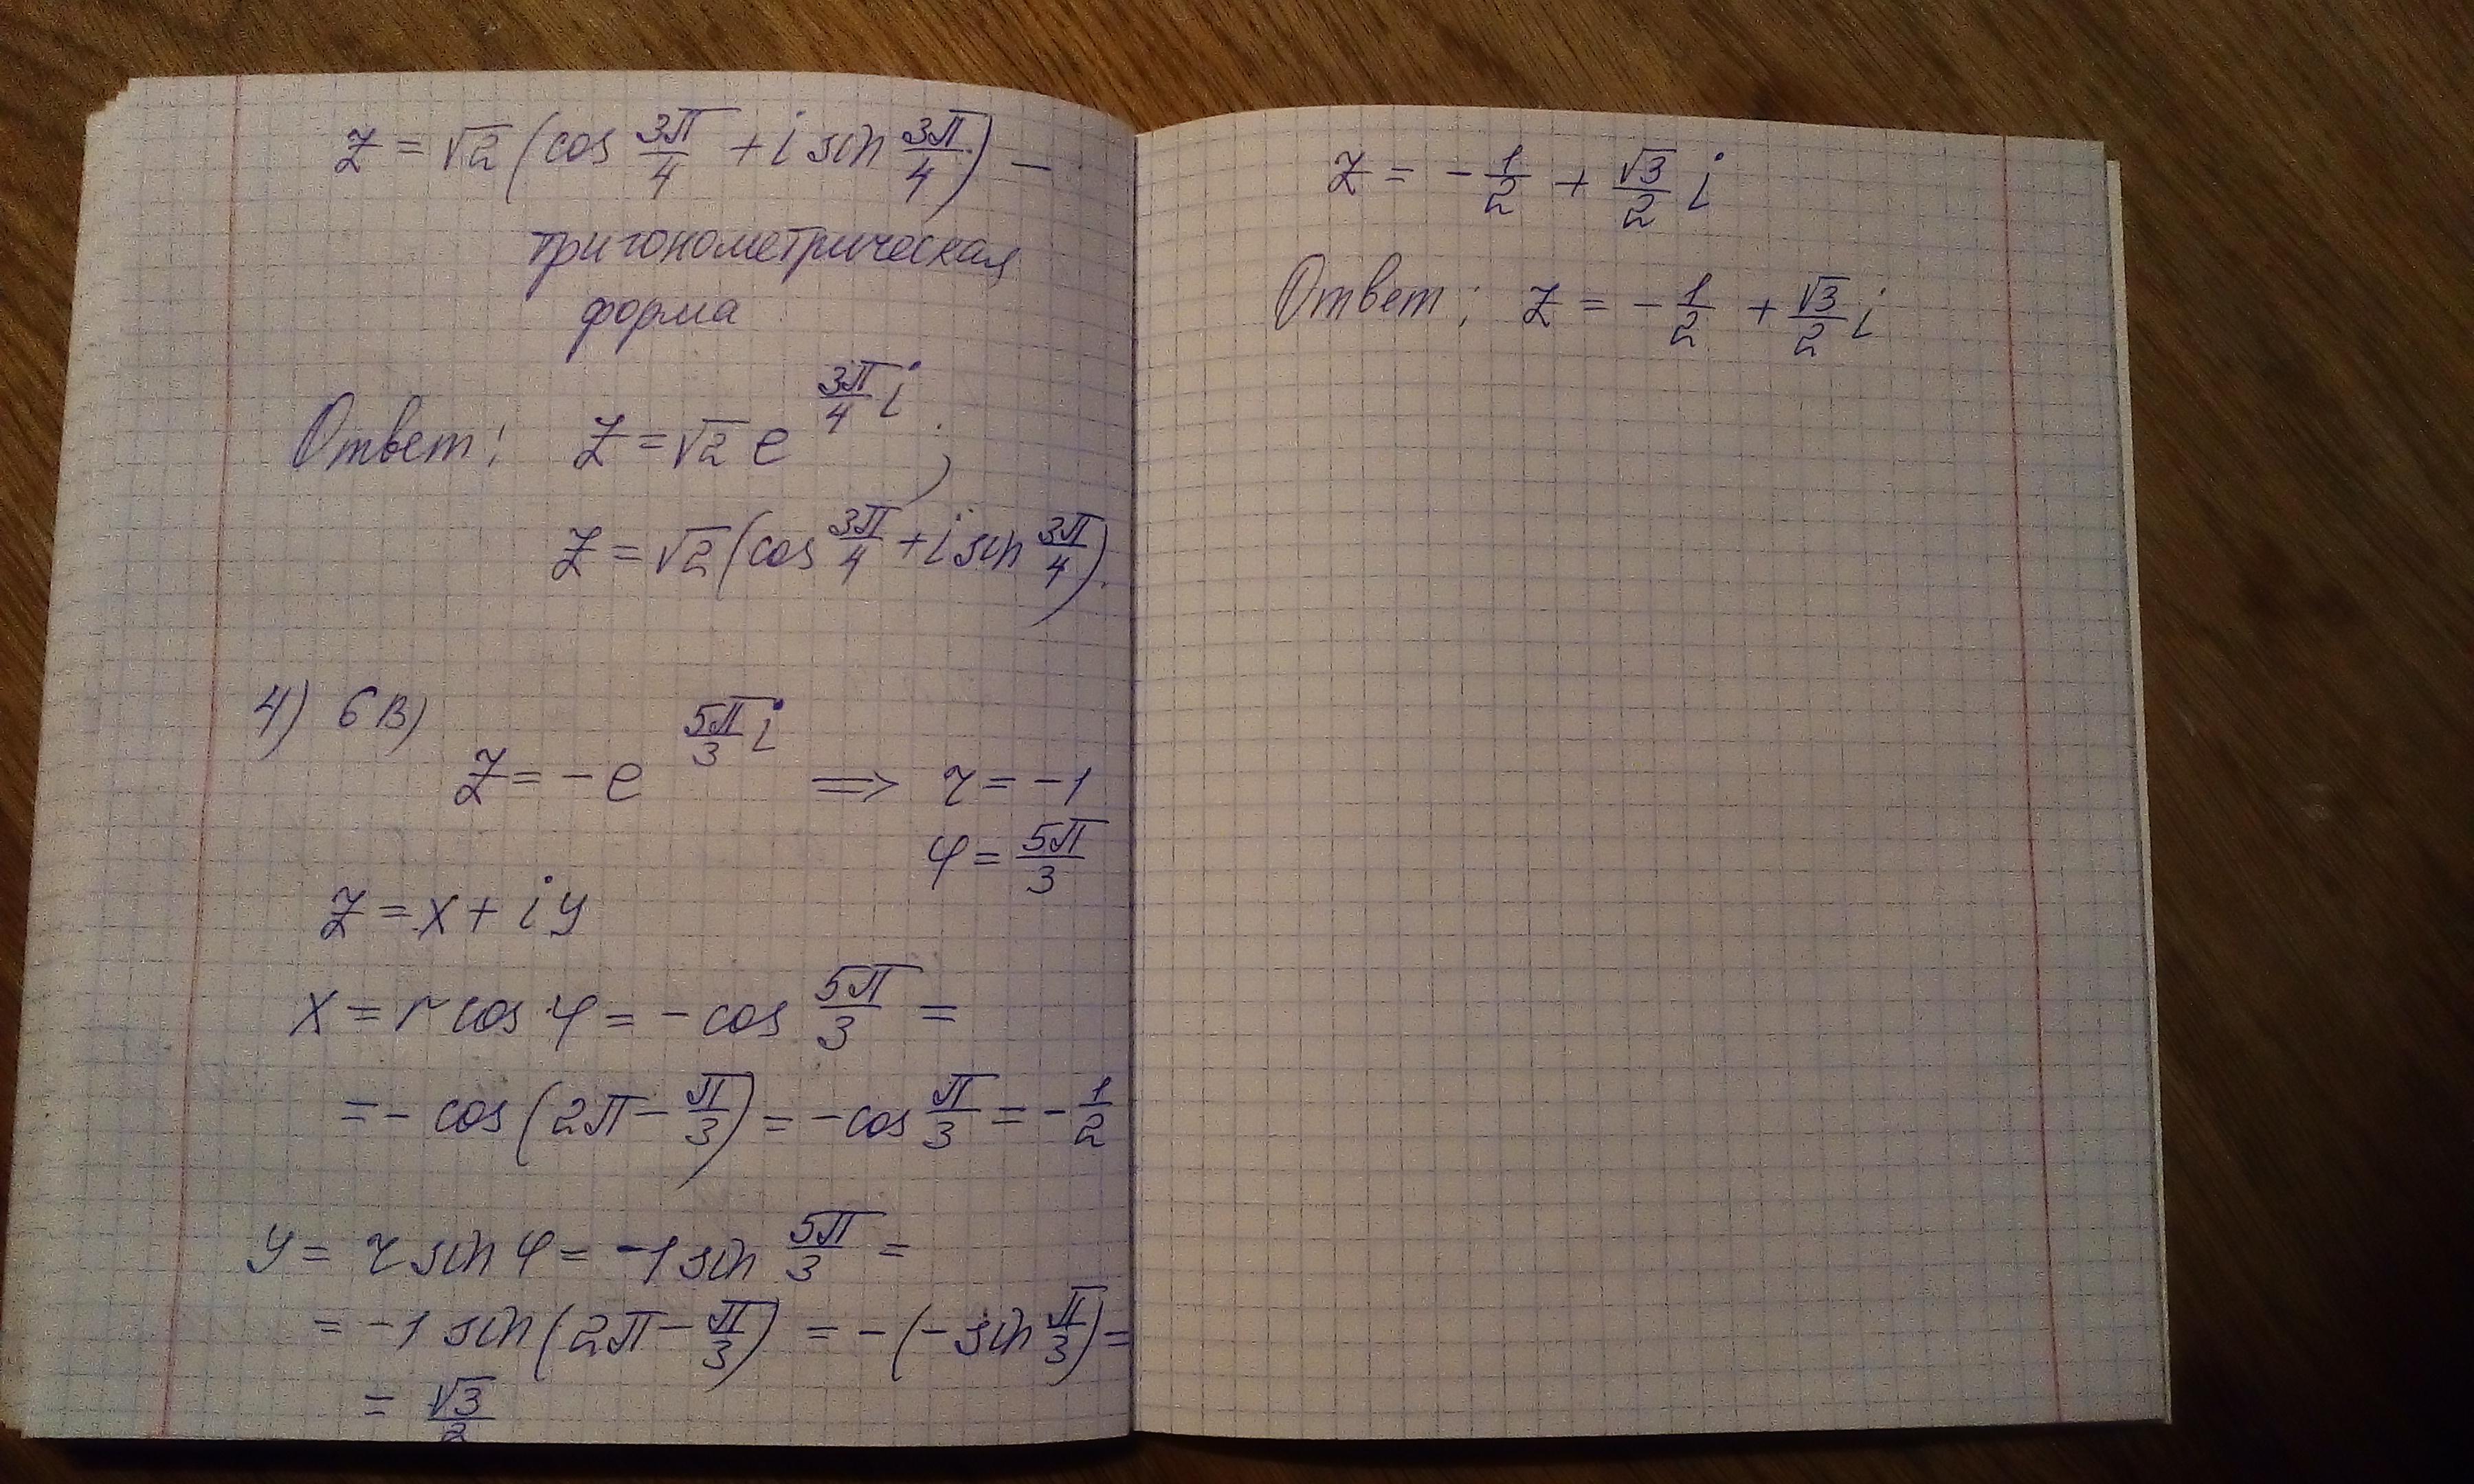 z = √2 (cos 3π/4 + i sin 3π/4) —
тригонометрическая
форма
Ответ: z = √2 e^(3π/4 i);
z = √2 (cos 3π/4 + i sin 3π/4).
4) 6в)
z = - e^(5π/3 i) ⟹ r = -1
φ = 5π/3
z = x + iy
x = r cos φ = - cos 5π/3 =
= - cos (2π - π/3) = - cos π/3 = - 1/2
y = r sin φ = -1 sin 5π/3 =
= -1 sin (2π - π/3) = -(- sin π/3) =
= √3/2
z = - 1/2 + √3/2 i
Ответ: z = - 1/2 + √3/2 i